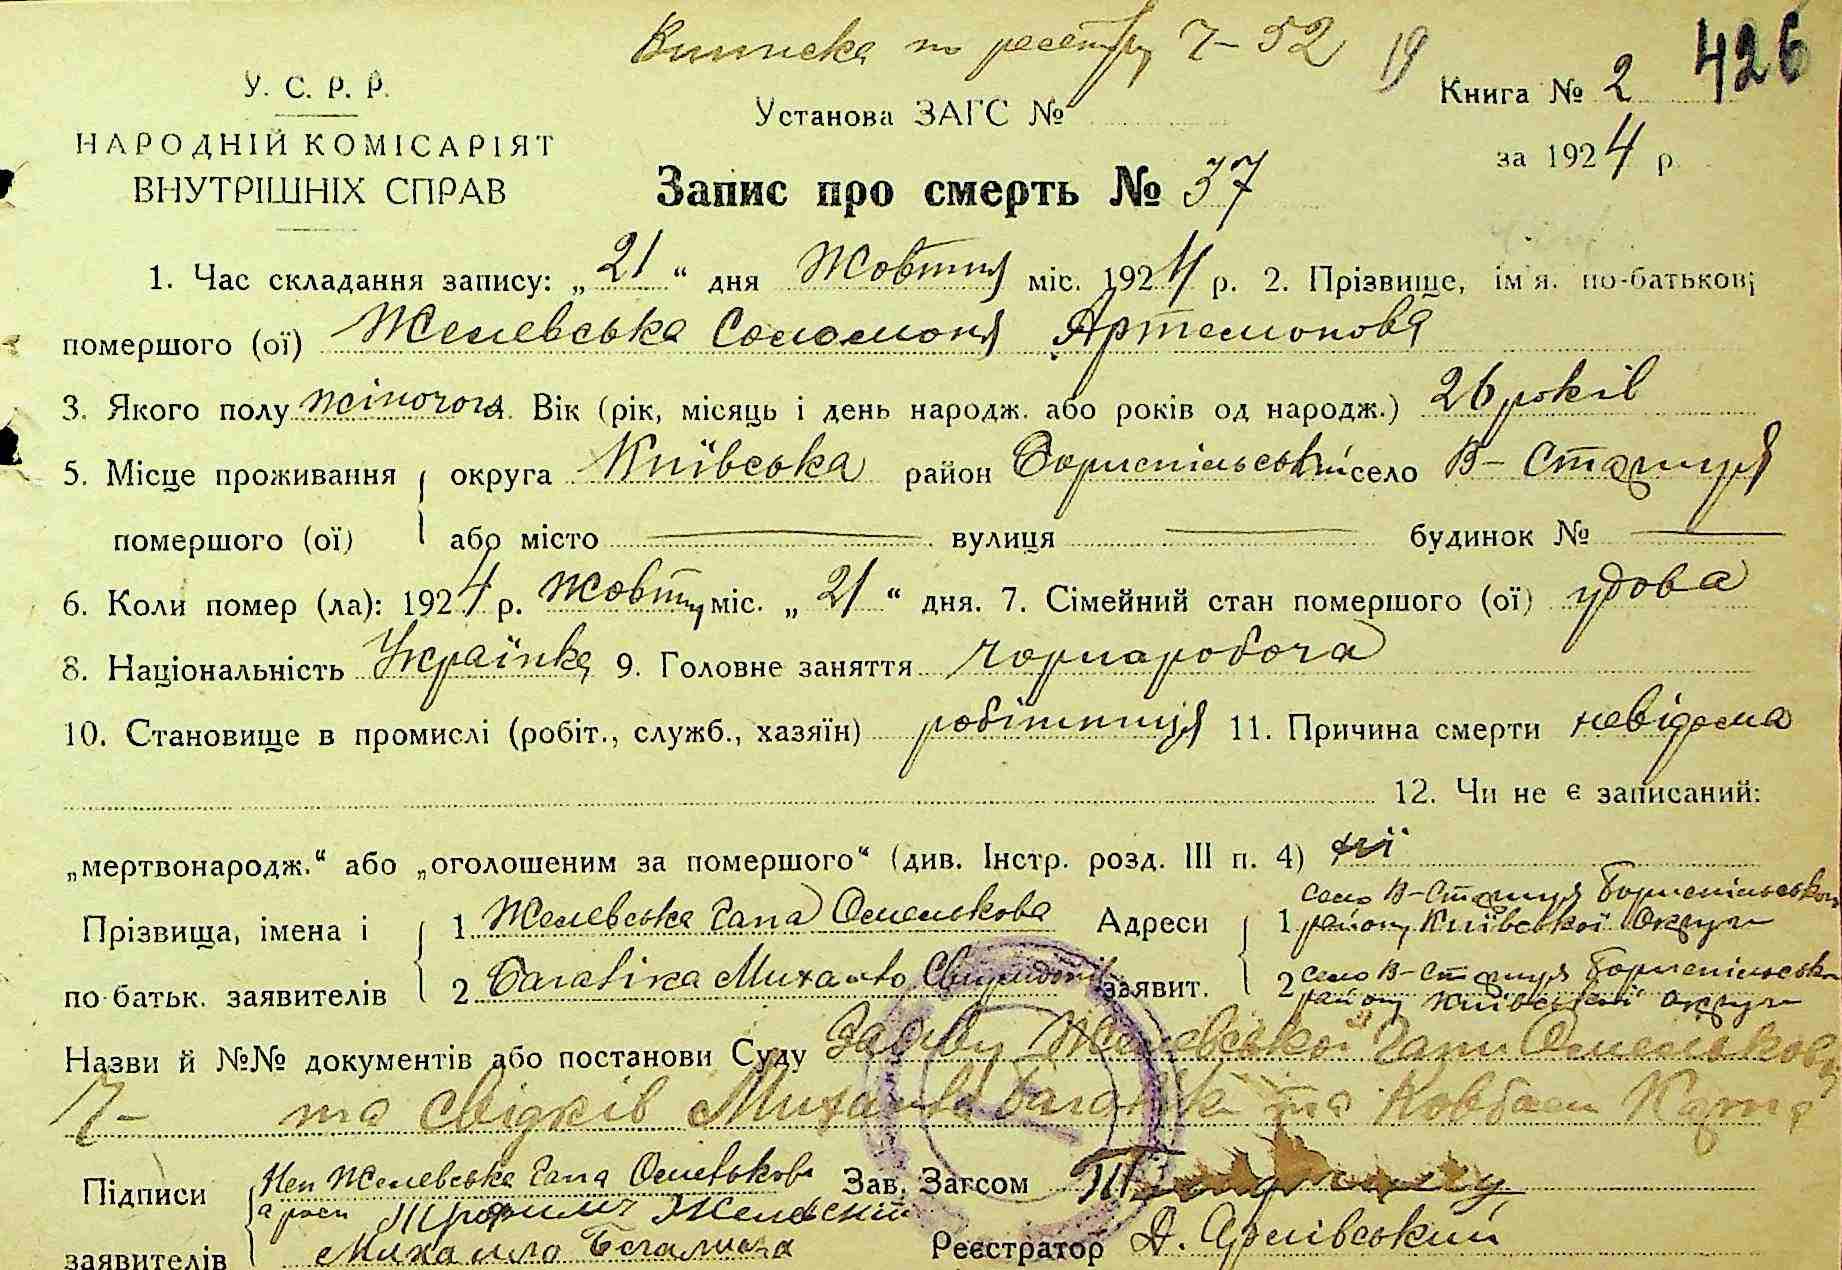 Виписка по реестру 7-52 19
426
У. С. Р. Р.
НАРОДНІЙ КОМІСАРІЯТ
ВНУТРІШНІХ СПРАВ
Установа ЗАГС №
Книга № 2
за 1924 р.
Запис про смерть № 37
1. Час складання запису: „21“ дня Жовтня міс. 1924 р. 2. Прізвище, ім'я. по-батькові
помершого (ої) Желевська Соломоня Артемонова
3. Якого полу жіночого. Вік (рік, місяць і день народж. або років од народж.) 26 років
5. Місце проживання округа Київська район Бориспільський село В-Стариця
помершого (ої) або місто — вулиця — будинок № —
6. Коли помер (ла): 1924 р. Жовтня міс. „21“ дня. 7. Сімейний стан помершого (ої) удова
8. Національність Українка 9. Головне заняття чорнаробоча
10. Становище в промислі (робіт., служб., хазяїн) робітниця 11. Причина смерти невідома
12. Чи не є записаний:
„мертвонародж.“ або „оголошеним за помершого“ (див. Інстр. розд. III п. 4) ні
Прізвища, імена і 1 Желевська Гапа Омелькова Адреси 1 село В-Стариця Бориспільського
району Київської округи
по батьк. заявителів 2 Багатіка Михайло Свиридонів заявит. 2 село В-Стариця Бориспільського
району Київської округи
Назви й №№ документів або постанови Суду Заяву Желевської Гапи Омелькової
7- та свідків Михайла та Ковбаси
Підписи Неп Желевська Гапа Омелькова Зав. Загсом
а росп Трофимъ Желевский
заявителів Михайло Реєстратор Д.